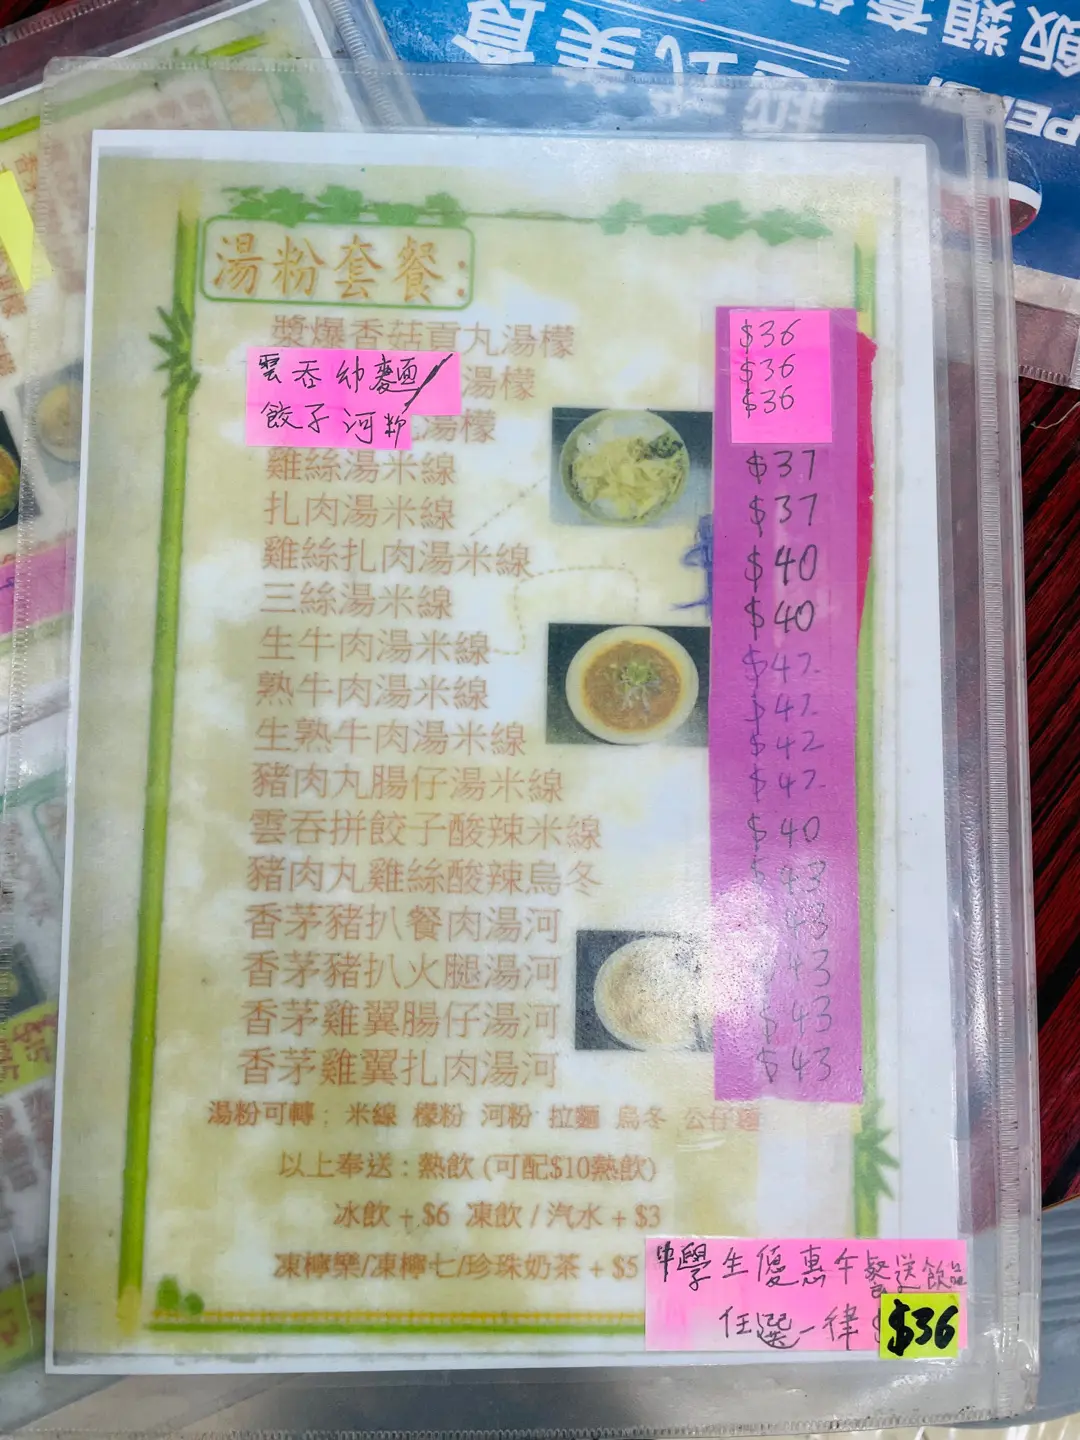 越式美食
飯類套餐
湯粉套餐:
漿爆香菇貢丸湯檬 $36
雲吞幼麵/ 湯檬 $36
餃子河粉 湯檬 $36
雞絲湯米線 $37
扎肉湯米線 $37
雞絲扎肉湯米線 $40
三絲湯米線 $40
生牛肉湯米線 $42
熟牛肉湯米線 $42
生熟牛肉湯米線 $42
豬肉丸腸仔湯米線 $42
雲吞拼餃子酸辣米線 $40
豬肉丸雞絲酸辣烏冬 $43
香茅豬扒餐肉湯河 $43
香茅豬扒火腿湯河 $43
香茅雞翼腸仔湯河 $43
香茅雞翼扎肉湯河 $43
湯粉可轉: 米線 檬粉 河粉 拉麵 烏冬 公仔麵
以上奉送:熱飲 (可配$10熱飲)
冰飲 + $6 凍飲 / 汽水 + $3
凍檸樂/凍檸七/珍珠奶茶 + $5
中學生優惠午餐送飲品
任選一律 $36